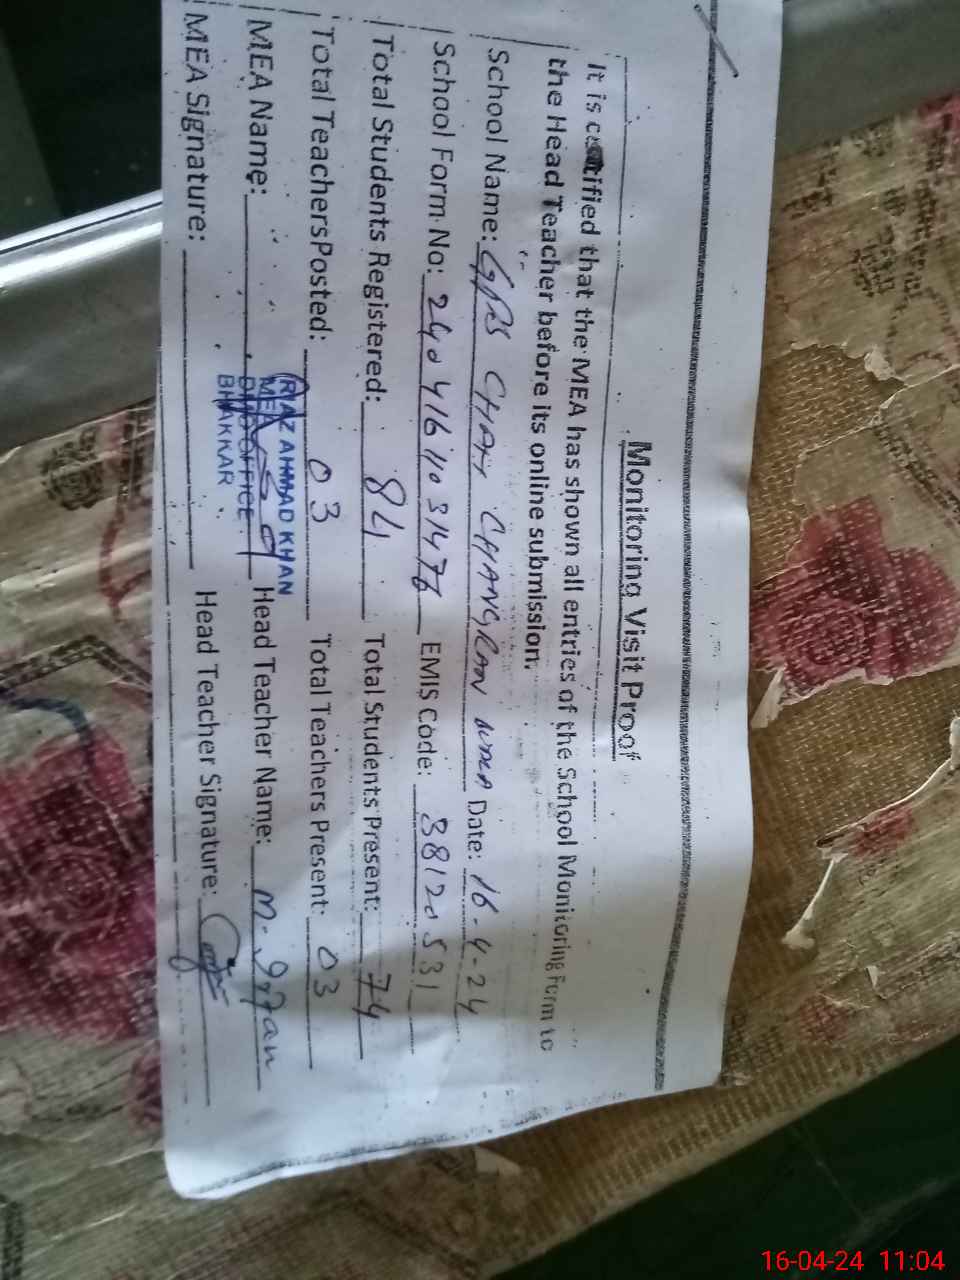 Monitoring Visit Proof
It is certified that the MEA has shown all entries of the School Monitoring Form to
the Head Teacher before its online submission.
School Name: GPS CHAH CHANGRAN WALA Date: 16-4-24
School Form No: EMIS Code: 38120531
Total Students Registered: 84 Total Students Present: 74
Total Teachers Posted: 03 Total Teachers Present: 03
RIAZ AHMAD KHAN
MEA
OFFICE
BHAKKAR
MEA Name: Head Teacher Name: M. Irfan
MEA Signature: Head Teacher Signature:
16-04-24 11:04